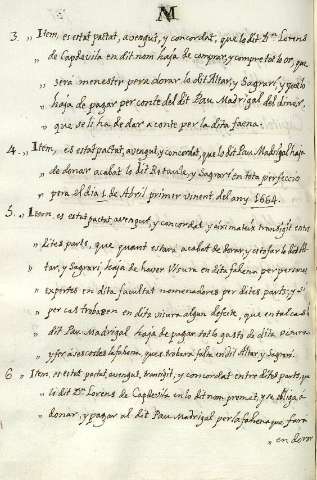 M
3 „ Item, es estat pactat, avengut, y concordat, que lo dit Dn. Lorens
„ de Capdevila en dit nom haja de comprar, y compre tot lo or, que
„ será menester pera dorar lo dit Altar, y Sagrari, y que lo
„ haja de pagar per conte del dit Pau Madrigal del diner,
„ que se li ha de dar a conte per la dita faena.
4 „ Item, es estat pactat, avengut, y concordat, que lo dit Pau Madrigal haja
„ de donar acabat lo dit Retaula, y Sagrari en tota perfecció
„ pera el dia 1 de Abril primer vinent del any 1664.
5 „ Item, es estat pactat, avengut, y concordat, y axi mateix transigit entre
„ dites parts, que quant estará acabat de dorar, y estofar lo dit Al-
„ tar, y Sagrari, haja de haver Visura en dita fahena per persones
„ expertes en dita facultat nomenadores per dites parts; y si
„ per cas trobasen en dita visura algun defecte, que en tal cas lo
„ dit Pau Madrigal haja de pagar tot lo gasto de dita visura
„ y fer á ses costes la fahena, que es trobará falta en dit Altar, y Sagrari.
6 „ Item, es estat pactat, avengut, transigit, y concordat entre dites parts, que
„ lo dit Dn. Lorens de Capdevila en lo dit nom promet, y se obliga a
„ donar, y pagar al dit Pau Madrigal per la fahena que fará
„ en dorar